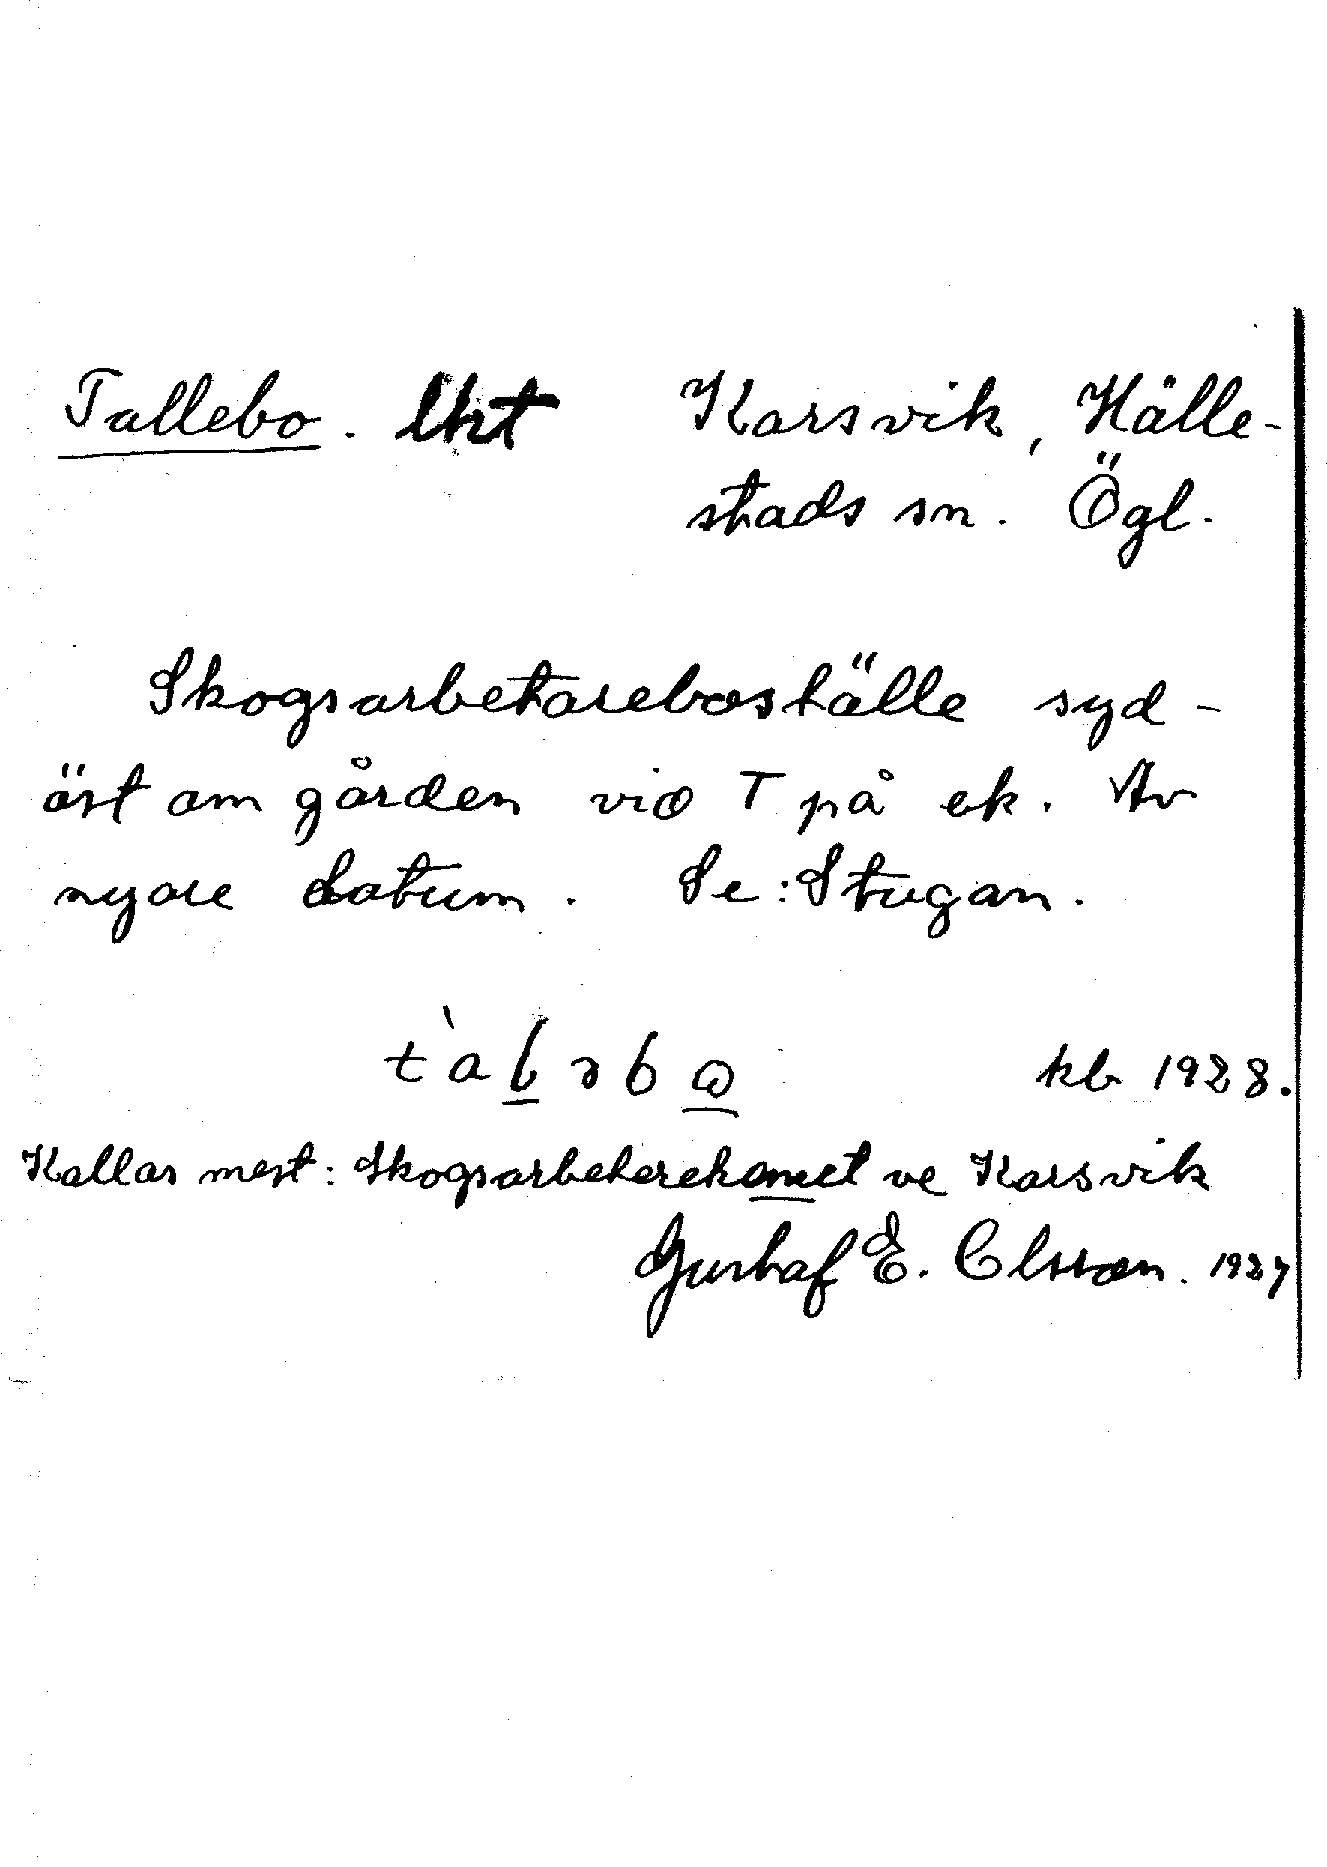 Tallebo. lht Karsvik, Hälle-
stads sn. Ögl.
Skogsarbetareboställe syd-
öst om gården vid T på ek. Av
nyare datum. Se: Stugan.
kb 1928.
Kallas mest: Skogsarbeterehemmet ve Karsvik
Gustaf E. Olsson. 1927